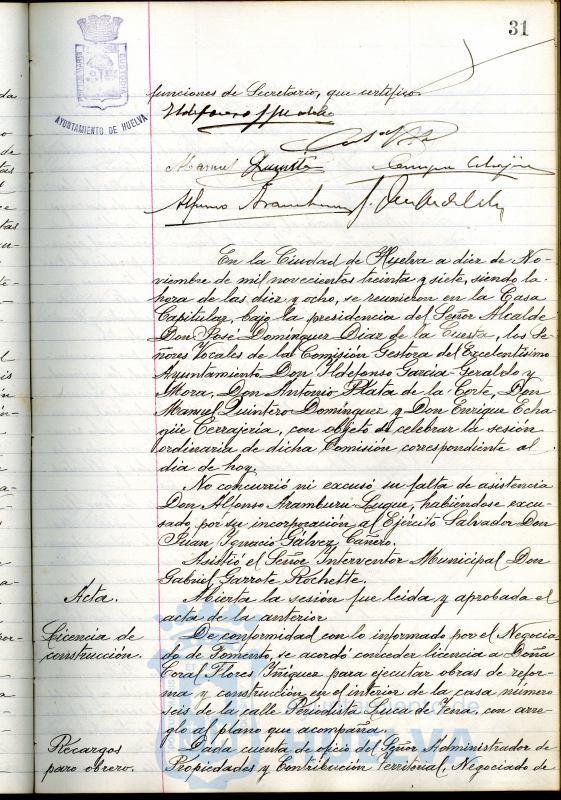 31
AYUNTAMIENTO DE HUELVA
funciones de Secretario, que certifico.
Manuel Quintero
Alfonso Aramburu
En la Ciudad de Huelva a diez de No-
viembre de mil novecientos treinta y siete, siendo la
hora de las diez y ocho, se reunieron en la Casa
Capitular, bajo la presidencia del Señor Alcalde
Don José Domínguez Diaz de la Cuesta, los Se-
ñores Vocales de la Comisión Gestora del Excelentísimo
Ayuntamiento Don Ildefonso Garcia-Geraldo y
Mora, Don Antonio Plata de la Corte, Don
Manuel Quintero Domínguez y Don Enrique Echa-
güe Cerrajeria, con objeto de celebrar la sesión
ordinaria de dicha Comisión correspondiente al
dia de hoy.
No concurrió ni excusó su falta de asistencia
Don Alfonso Aramburu Luque, habiéndose excu-
sado, por su incorporación al Ejército Salvador Don
Juan Ignacio Gálvez Cañero.
Asistió el Señor Interventor Municipal Don
Gabriel Garrote Rochette.
Acta.
Abierta la sesión fue leida y aprobada el
acta de la anterior
Licencia de
construcción.
De conformidad con lo informado por el Negocia-
do de Fomento, se acordó conceder licencia a Doña
Coral Flores Iñiguez para ejecutar obras de refor-
ma y construcción en el interior de la casa número
seis de la calle Periodista Luca de Tena, con arre-
glo al plano que acompaña.
Recargos
paro obrero.
Dada cuenta de oficio del Señor Administrador de
Propiedades y Contribución Territorial, Negociado de
Ayuntamiento de
HUELVA